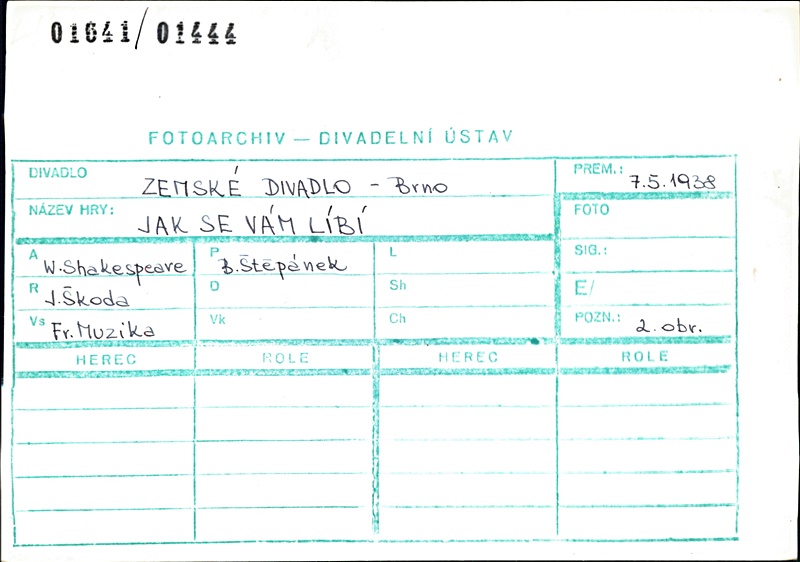 01641/01444
FOTOARCHIV — DIVADELNÍ ÚSTAV
DIVADLO ZEMSKÉ DIVADLO - Brno PREM.: 7.5.1938
NÁZEV HRY: JAK SE VÁM LÍBÍ FOTO
A W.Shakespeare P B.Štěpánek L SIG.:
R J.Škoda D Sh E/
Vs Fr.Muzika Vk Ch POZN.: 2. obr.
HEREC ROLE HEREC ROLE